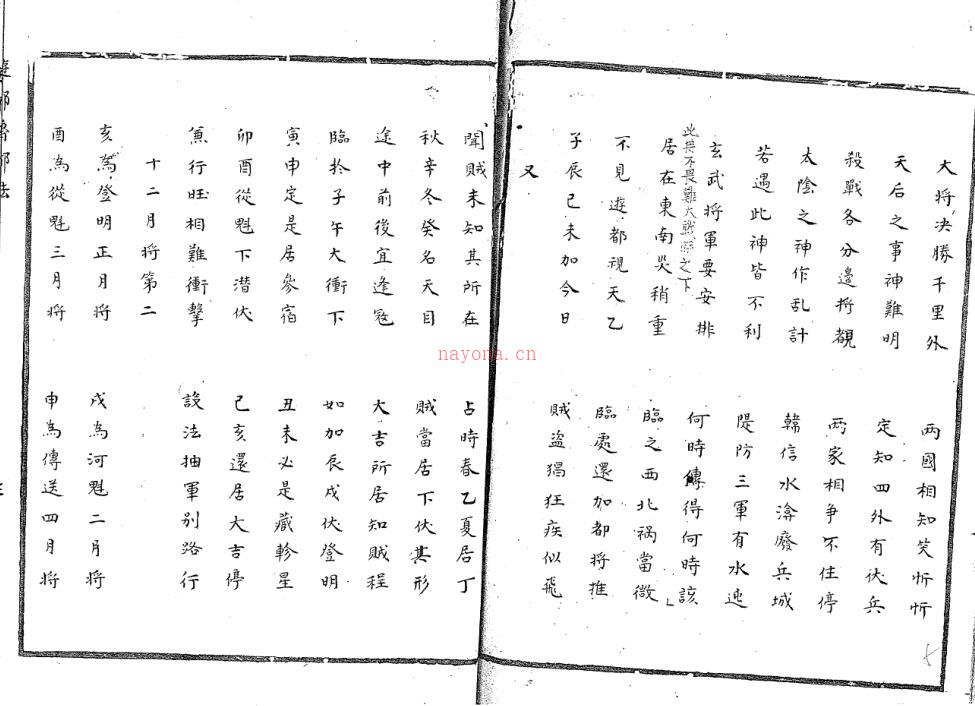 大将决勝千里外　两國相知笑忻忻
天后之事神難明　定知四外有伏兵
殺戰各分邊將觀　两家相争不住停
太陰之神作乱計　韓信水渰廢兵城
若遇此神皆不利　隄防三軍有水迍
玄武将軍要安排　何時得何時該
此興不畏難大戰之下
居在東南灾稍重　臨之西北祸當微
不見遊都視天乙　臨處還加都将推
子辰巳未加今日　賊盗猖狂疾似飛
又
聞賊未知其所在　占時春乙夏居丁
秋辛冬癸名天目　賊當居下伏其形
途中前後宜逢寇　大吉所居知賊程
臨於子午大衝下　如加辰戌伏登明
寅申定是居參宿　丑未必是藏軫星
卯酉從魁下潜伏　巳亥還居大吉停
兼行旺相難衝擊　設法抽軍别路行
十二月将第二
亥為登明正月将　戌為河魁二月将
酉為從魁三月将　申為傳送四月将
nayona.cn